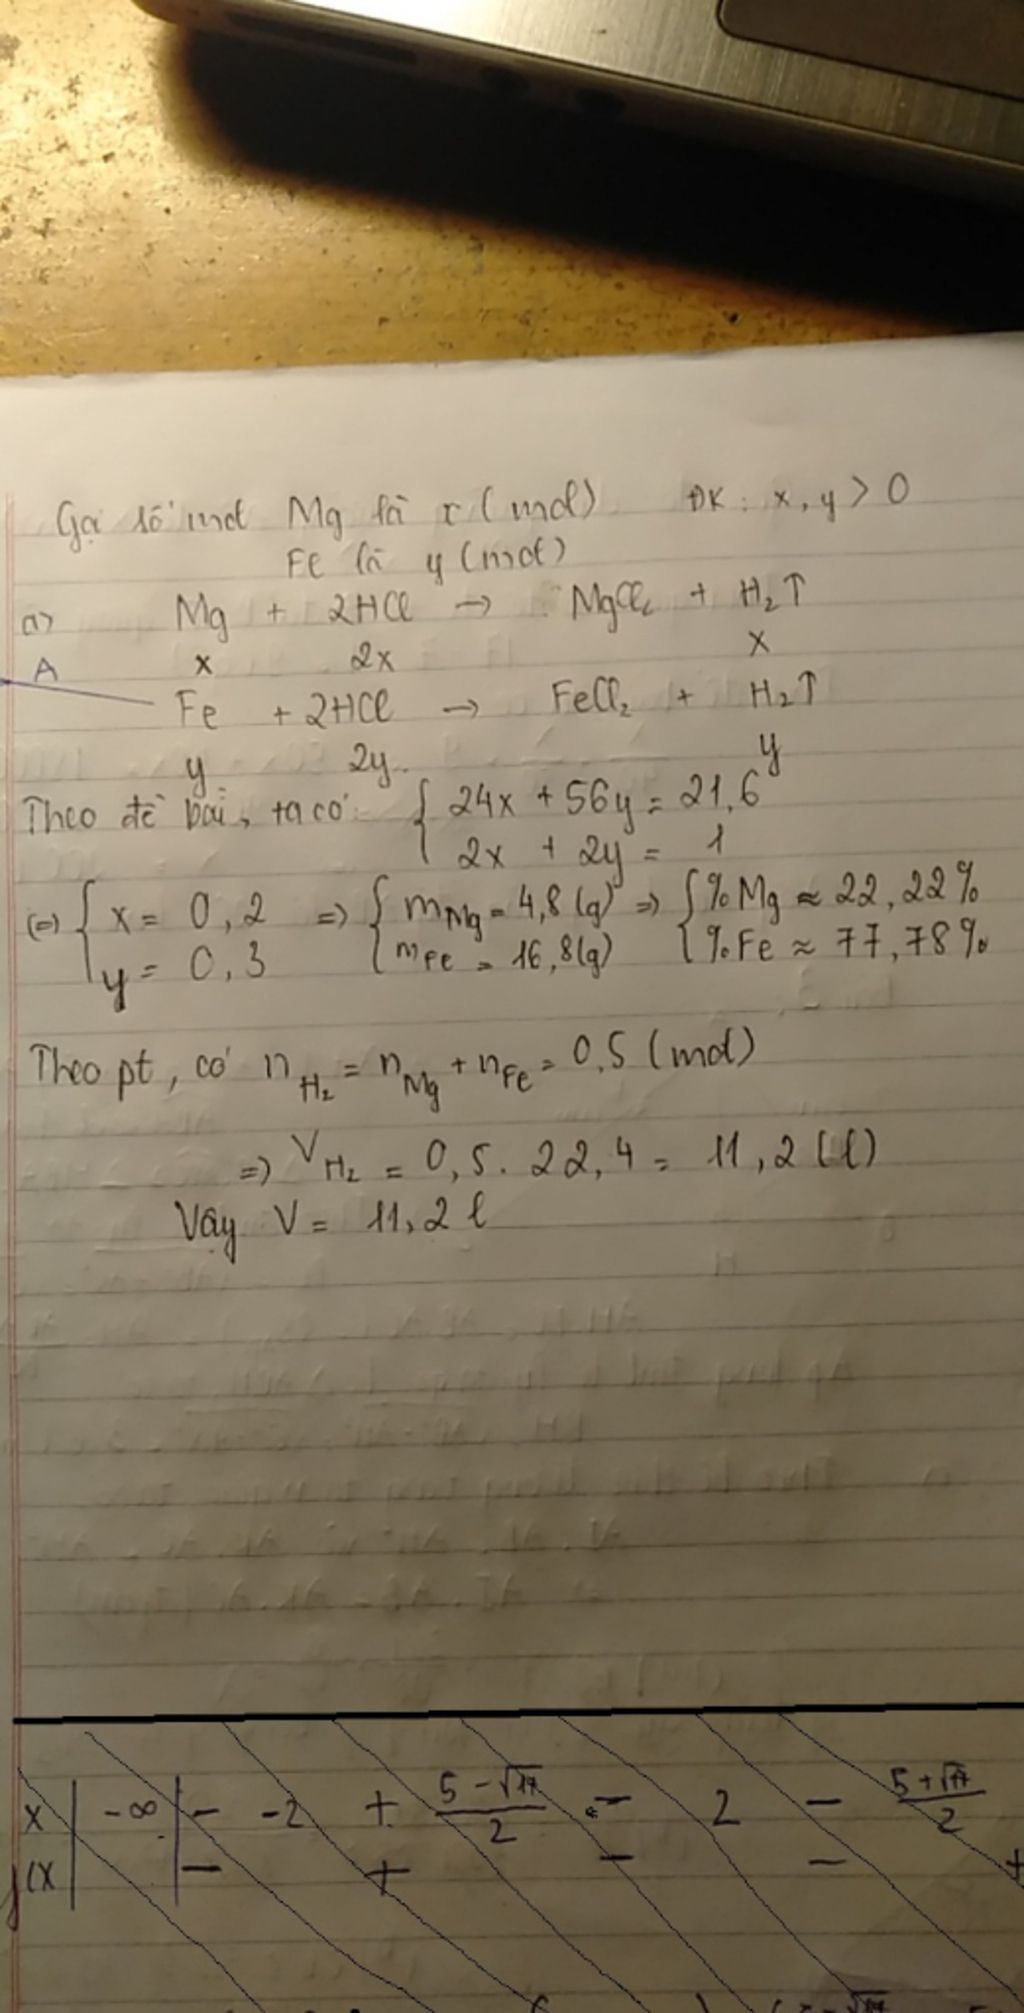 Gọi số mol Mg là x (mol) ĐK: x, y > 0
Fe là y (mol)
a) Mg + 2HCl → MgCl₂ + H₂↑
A x 2x x
Fe + 2HCl → FeCl₂ + H₂↑
y 2y y
Theo đề bài, ta có: { 24x + 56y = 21,6
2x + 2y = 1
(=) { x = 0,2 => { mMg = 4,8 (g) => { %Mg ≈ 22,22%
y = 0,3 mFe = 16,8(g) %Fe ≈ 77,78%
Theo pt, có nH₂ = nMg + nFe = 0,5 (mol)
=> VH₂ = 0,5. 22,4 = 11,2 (l)
Vậy V = 11,2 l
x | -∞ | - -2 + (5-√17)/2 - 2 - (5+√17)/2
- + - - +